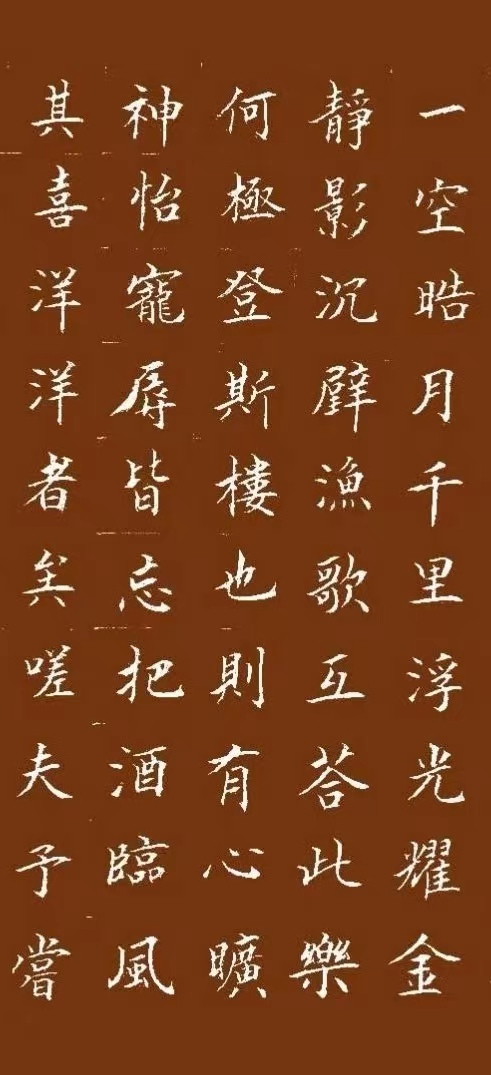 一空晧月千里浮光耀金
靜影沉璧漁歌互荅此樂
何極登斯樓也則有心曠
神怡寵辱皆忘把酒臨風
其喜洋洋者矣嗟夫予嘗